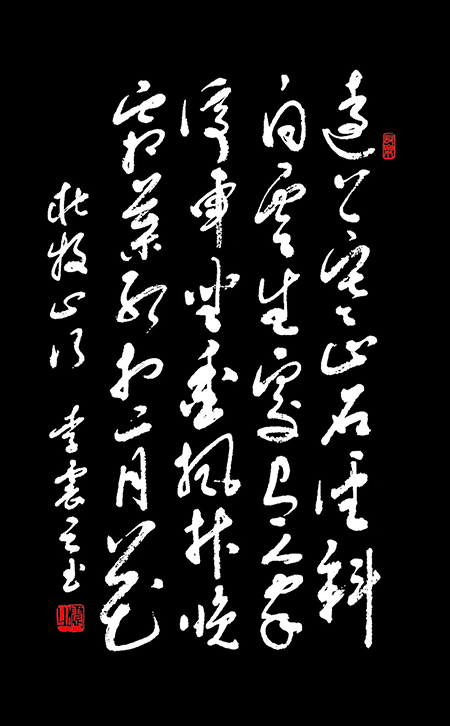 遠上寒山石徑斜
白雲生處有人家
停車坐愛楓林晚
霜葉紅於二月花
杜牧山行 李震之书